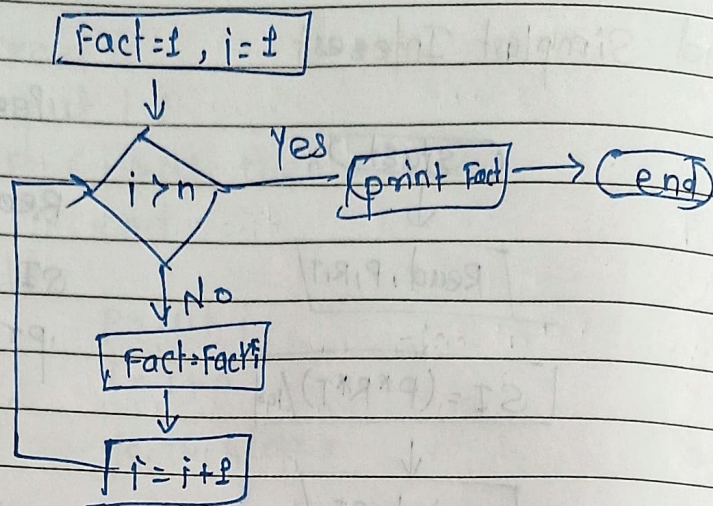 Fact=1, i=1
i>n
Yes
print Fact
end
No
Fact=Fact*i
i=i+1